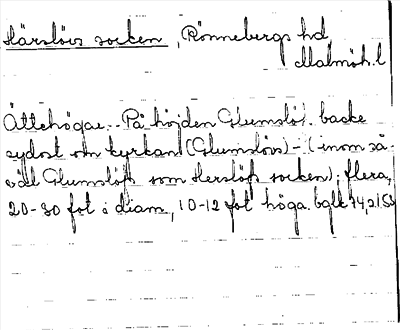 Härslövs socken, Rönnebergs hd
Malmöh. l
Ättehögar. - På höjden Glumslöfs backe
sydost om kyrkan (Glumslövs) - (inom så-
väl Glumslöfs som Herslöfs socken); flera,
20-30 fot i diam, 10-12 fot höga.